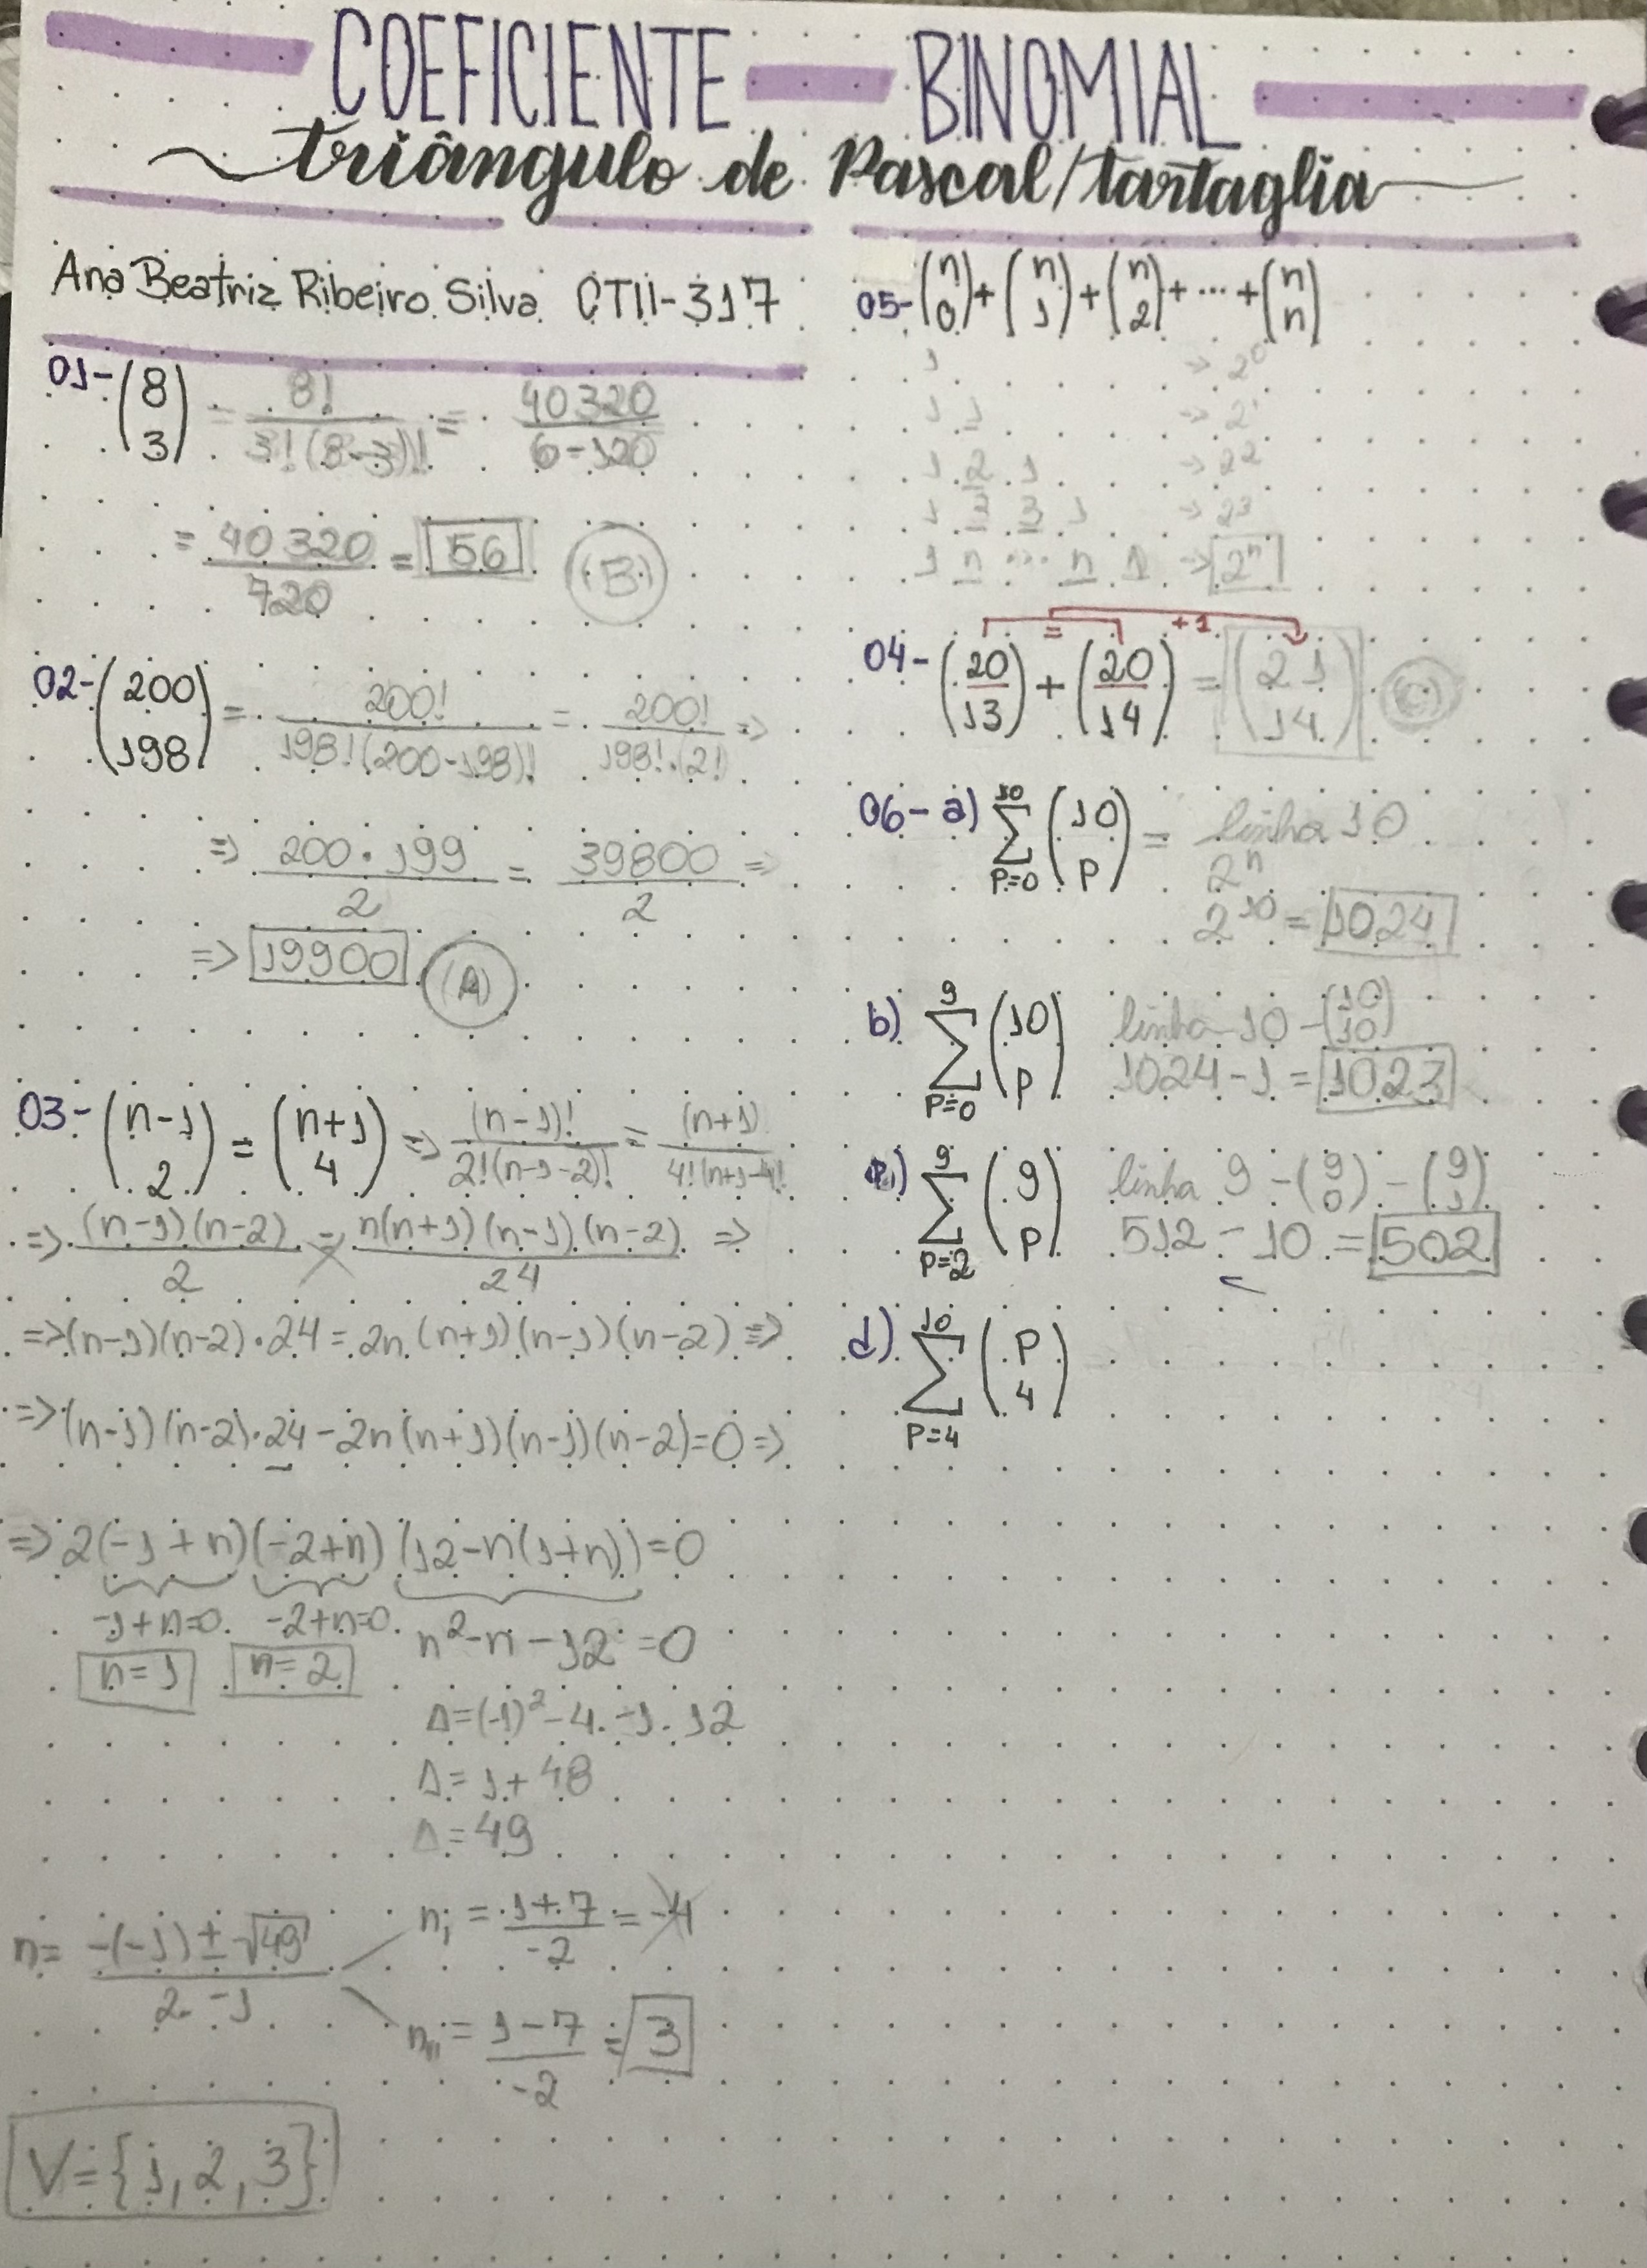 COEFICIENTE BINOMIAL
triângulo de Pascal/tartaglia
Ana Beatriz Ribeiro Silva CTII-317
01- (8 3) = 8! / 3!(8-3)! = 40320 / 6-120
= 40320 / 720 = 56 (B)
02- (200 198) = 200! / 198!(200-198)! = 200! / 198!.(2!) =>
=> 200.199 / 2 = 39800 / 2 =>
=> 19900 (A)
03- (n-1 2) = (n+1 4) => (n-1)! / 2!(n-1-2)! = (n+1) / 4!(n+1-4)!
=> (n-1)(n-2) / 2 = n(n+1)(n-1)(n-2) / 24 =>
=> (n-1)(n-2).24 = 2n(n+1)(n-1)(n-2) =>
=> (n-1)(n-2).24 - 2n(n+1)(n-1)(n-2) = 0 =>
=> 2(-1+n)(-2+n)(12-n(1+n)) = 0
-1+n=0 -2+n=0 n²-n-12=0
n=1 n=2
Δ=(-1)²-4.-1.12
Δ=1+48
Δ=49
n= -(-1) ± √49 / 2.-1
n, = 1+7 / -2 = -4
n,, = 1-7 / -2 = 3
V={1,2,3}
05- (n 0) + (n 1) + (n 2) + ... + (n n)
1 => 2⁰
1 1 => 2¹
1 2 1 => 2²
1 3 3 1 => 2³
1 n ... n 1 => 2ⁿ
= +1
04- (20 13) + (20 14) = (21 14) (C)
06- a) 10 Σ P=0 (10 P) = linha 10
2ⁿ
2¹⁰ = 1024
b) 9 Σ P=0 (10 P) linha 10 - (10 10)
1024-1 = 1023
c) 9 Σ P=2 (9 P) linha 9 - (9 0) - (9 1)
512 - 10 = 502
d) 10 Σ P=4 (P 4)